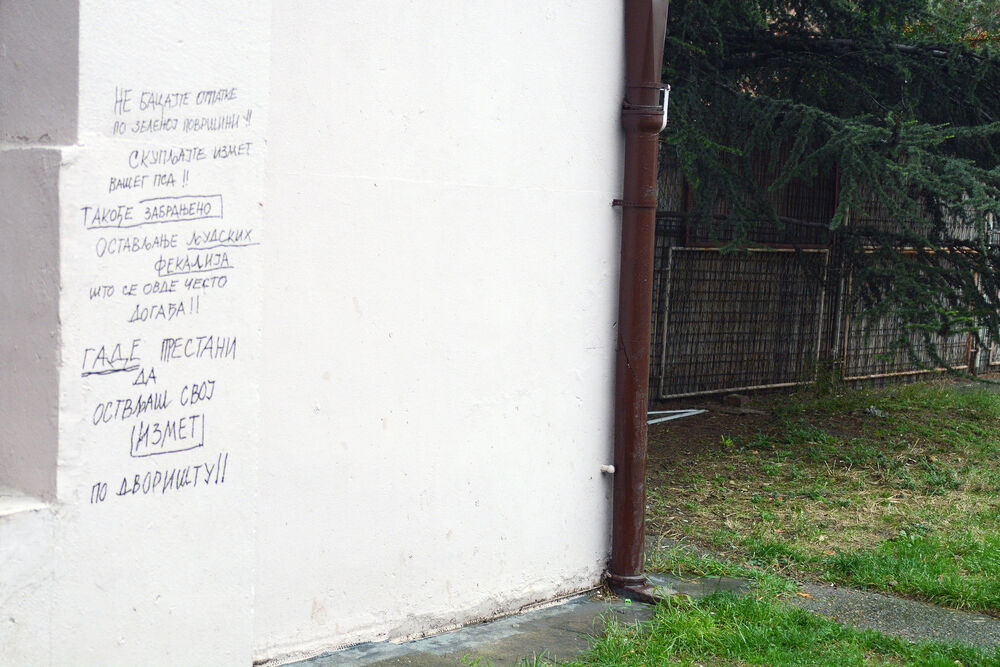 НЕ БАЦАЈТЕ ОТПАТКЕ
ПО ЗЕЛЕНОЈ ПОВРШИНИ !!
СКУПЉАЈТЕ ИЗМЕТ
ВАШЕГ ПСА !!
ТАКОЂЕ ЗАБРАЊЕНО
ОСТАВЉАЊЕ ЉУДСКИХ
ФЕКАЛИЈА
ШТО СЕ ОВДЕ ЧЕСТО
ДОГАЂА !!
ГАДЕ ПРЕСТАНИ
ДА
ОСТВЉАШ СВОЈ
ИЗМЕТ
ПО ДВОРИШТУ !!